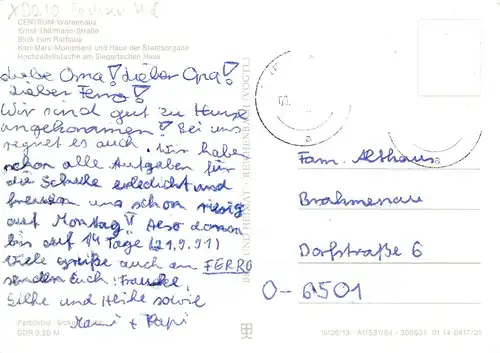 CENTRUM-Warenhaus
Ernst-Thälmann-Straße
Blick zum Rathaus
Karl-Marx-Monument und Haus der Staatsorgane
Hochzeitskutsche am Siegertschen Haus
Liebe Oma! Lieber Opa!
Lieber Ferro!
Wir sind gut zu Hause
angekommen! Bei uns
regnet es auch. Wir haben
schon alle Aufgaben für
die Schule erledicht und
freuen uns schon riesig
auf Montag! Also dann
bis auf 14 Tage (21.9.91)
Viele grüße auch an FERRO
senden Euch: Frauke,
Silke und Heike sowie
Mami + Papi
BILD UND HEIMAT · REICHENBACH (VOGTL.)
Fam. Althaus
Brahmenau
Dorfstraße 6
O-6501
DDR 0,20 M
A1/537/84 01 14 0417/31